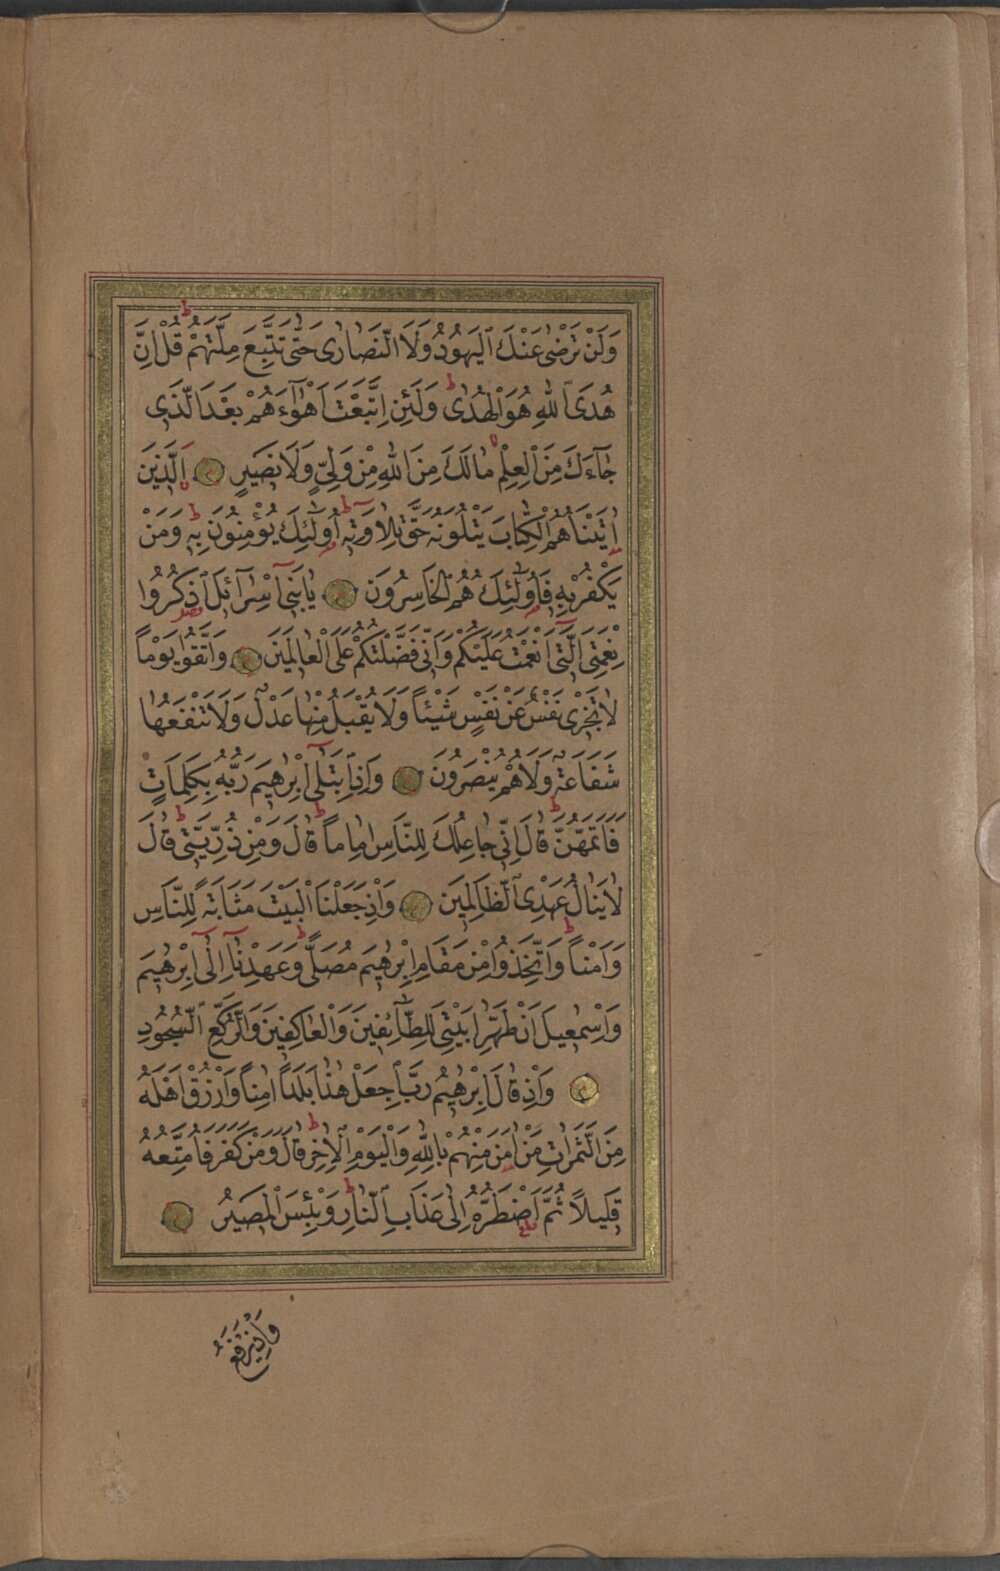 وَلَنْ تَرْضٰى عَنْكَ الْيَهُودُ وَلَا النَّصَارٰى حَتّٰى تَتَّبِعَ مِلَّتَهُمْ قُلْ اِنَّ
هُدَى اللّٰهِ هُوَ الْهُدٰى وَلَئِنِ اتَّبَعْتَ اَهْوَٓاءَهُمْ بَعْدَ الَّذٖى
جَٓاءَكَ مِنَ الْعِلْمِ مَالَكَ مِنَ اللّٰهِ مِنْ وَلِيٍّ وَلَا نَصٖيرٍ اَلَّذٖينَ
اٰتَيْنَاهُمُ الْكِتَابَ يَتْلُونَهُ حَقَّ تِلَاوَتِهٖ اُولٰٓئِكَ يُؤْمِنُونَ بِهٖ وَمَنْ
يَكْفُرْ بِهٖ فَاُولٰٓئِكَ هُمُ الْخَاسِرُونَ يَا بَنٖٓى اِسْرَٓائٖلَ اذْكُرُوا
نِعْمَتِىَ الَّتٖٓى اَنْعَمْتُ عَلَيْكُمْ وَاَنّٖى فَضَّلْتُكُمْ عَلَى الْعَالَمٖينَ وَاتَّقُوا يَوْمًا
لَا تَجْزٖى نَفْسٌ عَنْ نَفْسٍ شَيْئًا وَلَا يُقْبَلُ مِنْهَا عَدْلٌ وَلَا تَنْفَعُهَا
شَفَاعَةٌ وَلَا هُمْ يُنْصَرُونَ وَاِذِ ابْتَلٰٓى اِبْرٰهٖيمَ رَبُّهُ بِكَلِمَاتٍ
فَاَتَمَّهُنَّ قَالَ اِنّٖى جَاعِلُكَ لِلنَّاسِ اِمَامًا قَالَ وَمِنْ ذُرِّيَّتٖى قَالَ
لَا يَنَالُ عَهْدِى الظَّالِمٖينَ وَاِذْ جَعَلْنَا الْبَيْتَ مَثَابَةً لِلنَّاسِ
وَاَمْنًا وَاتَّخِذُوا مِنْ مَقَامِ اِبْرٰهٖيمَ مُصَلًّى وَعَهِدْنَٓا اِلٰٓى اِبْرٰهٖيمَ
وَاِسْمٰعٖيلَ اَنْ طَهِّرَا بَيْتِىَ لِلطَّٓائِفٖينَ وَالْعَاكِفٖينَ وَالرُّكَّعِ السُّجُودِ
وَاِذْ قَالَ اِبْرٰهٖيمُ رَبِّ اجْعَلْ هٰذَا بَلَدًا اٰمِنًا وَارْزُقْ اَهْلَهُ
مِنَ الثَّمَرَاتِ مَنْ اٰمَنَ مِنْهُمْ بِاللّٰهِ وَالْيَوْمِ الْاٰخِرِ قَالَ وَمَنْ كَفَرَ فَاُمَتِّعُهُ
قَلٖيلًا ثُمَّ اَضْطَرُّهُٓ اِلٰى عَذَابِ النَّارِ وَبِئْسَ الْمَصٖيرُ
وَاِذْ يَرْفَعُ